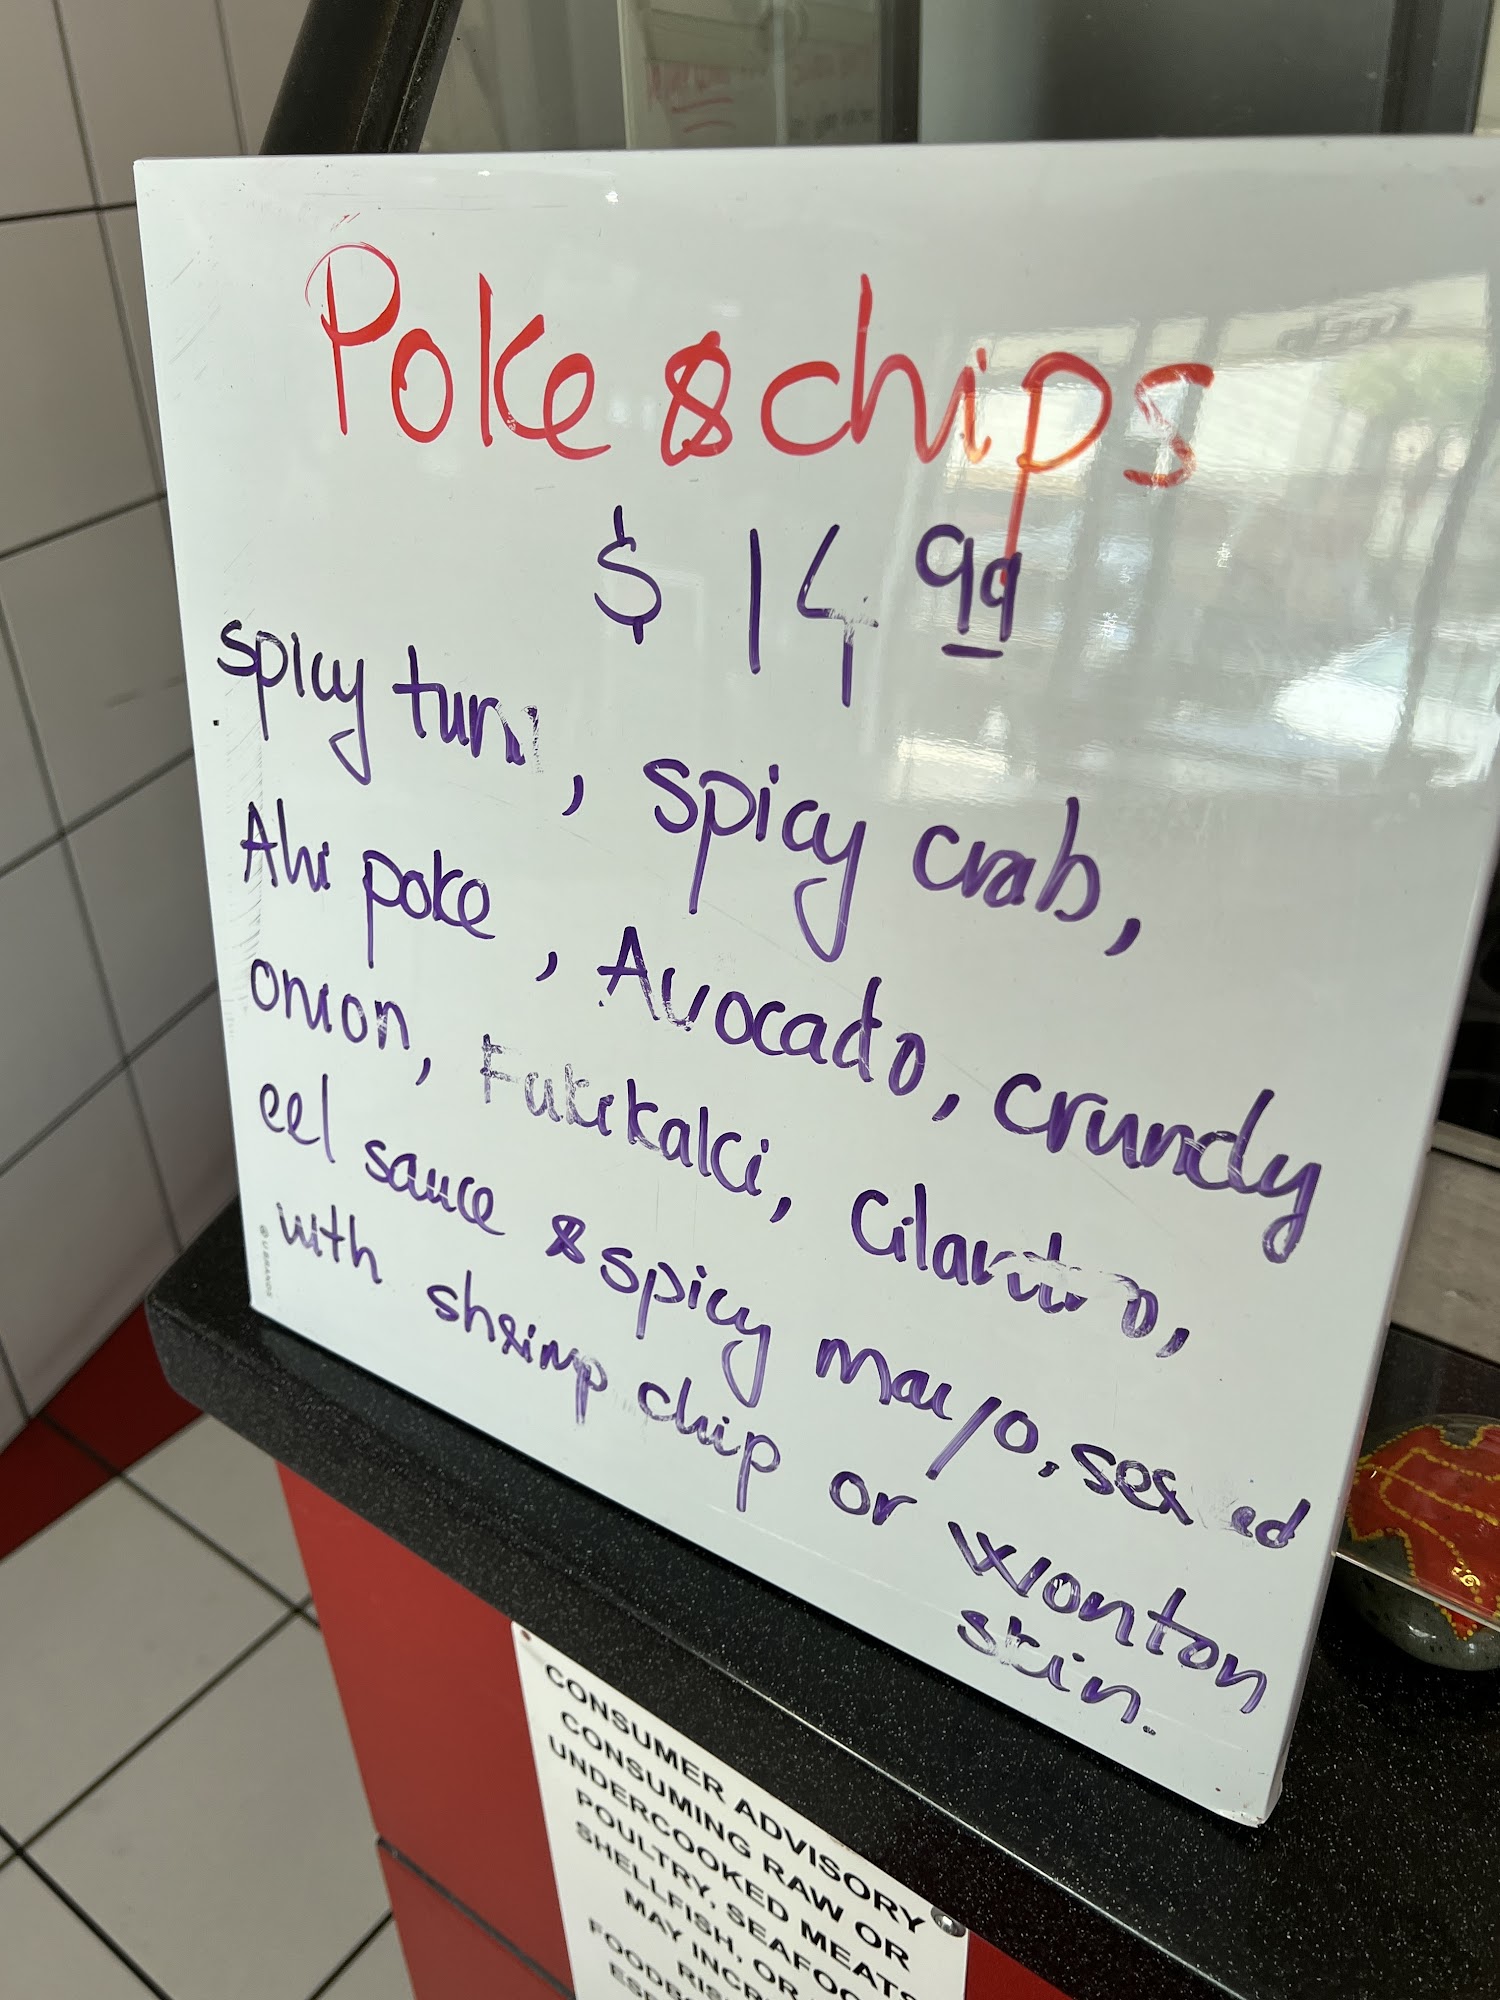 Poke & chips
$ 14 99
spicy tuna, spicy crab,
Ahi poke, Avocado, crundy
onion, Fukikaki, Cilantro,
eel sauce & spicy mayo, served
with shrimp chip or wonton
skin.
© U BRANDS
CONSUMER ADVISORY
CONSUMING RAW OR
UNDERCOOKED MEATS
POULTRY, SEAFOO
SHELLFISH, OR
MAY INCR
RIS
FOODB